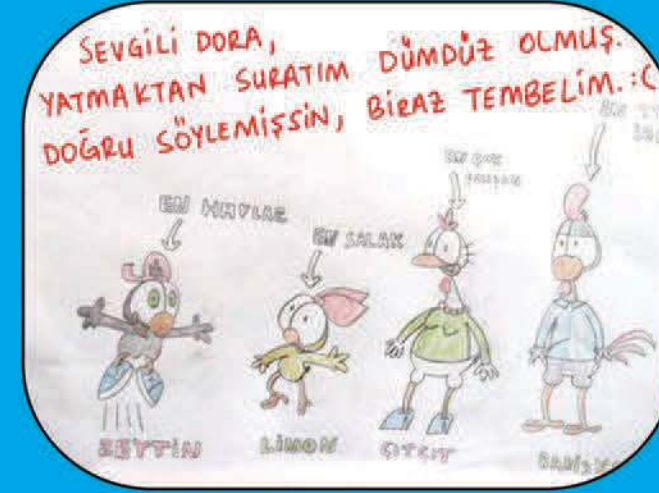 SEVGİLİ DORA,
YATMAKTAN SURATIM DÜMDÜZ OLMUŞ.
DOĞRU SÖYLEMİŞSİN, BİRAZ TEMBELİM. :(
EN
EN ÇOK
EN HAYLAZ
EN SALAK
ZEYTİN
LİMON
ÇITÇIT